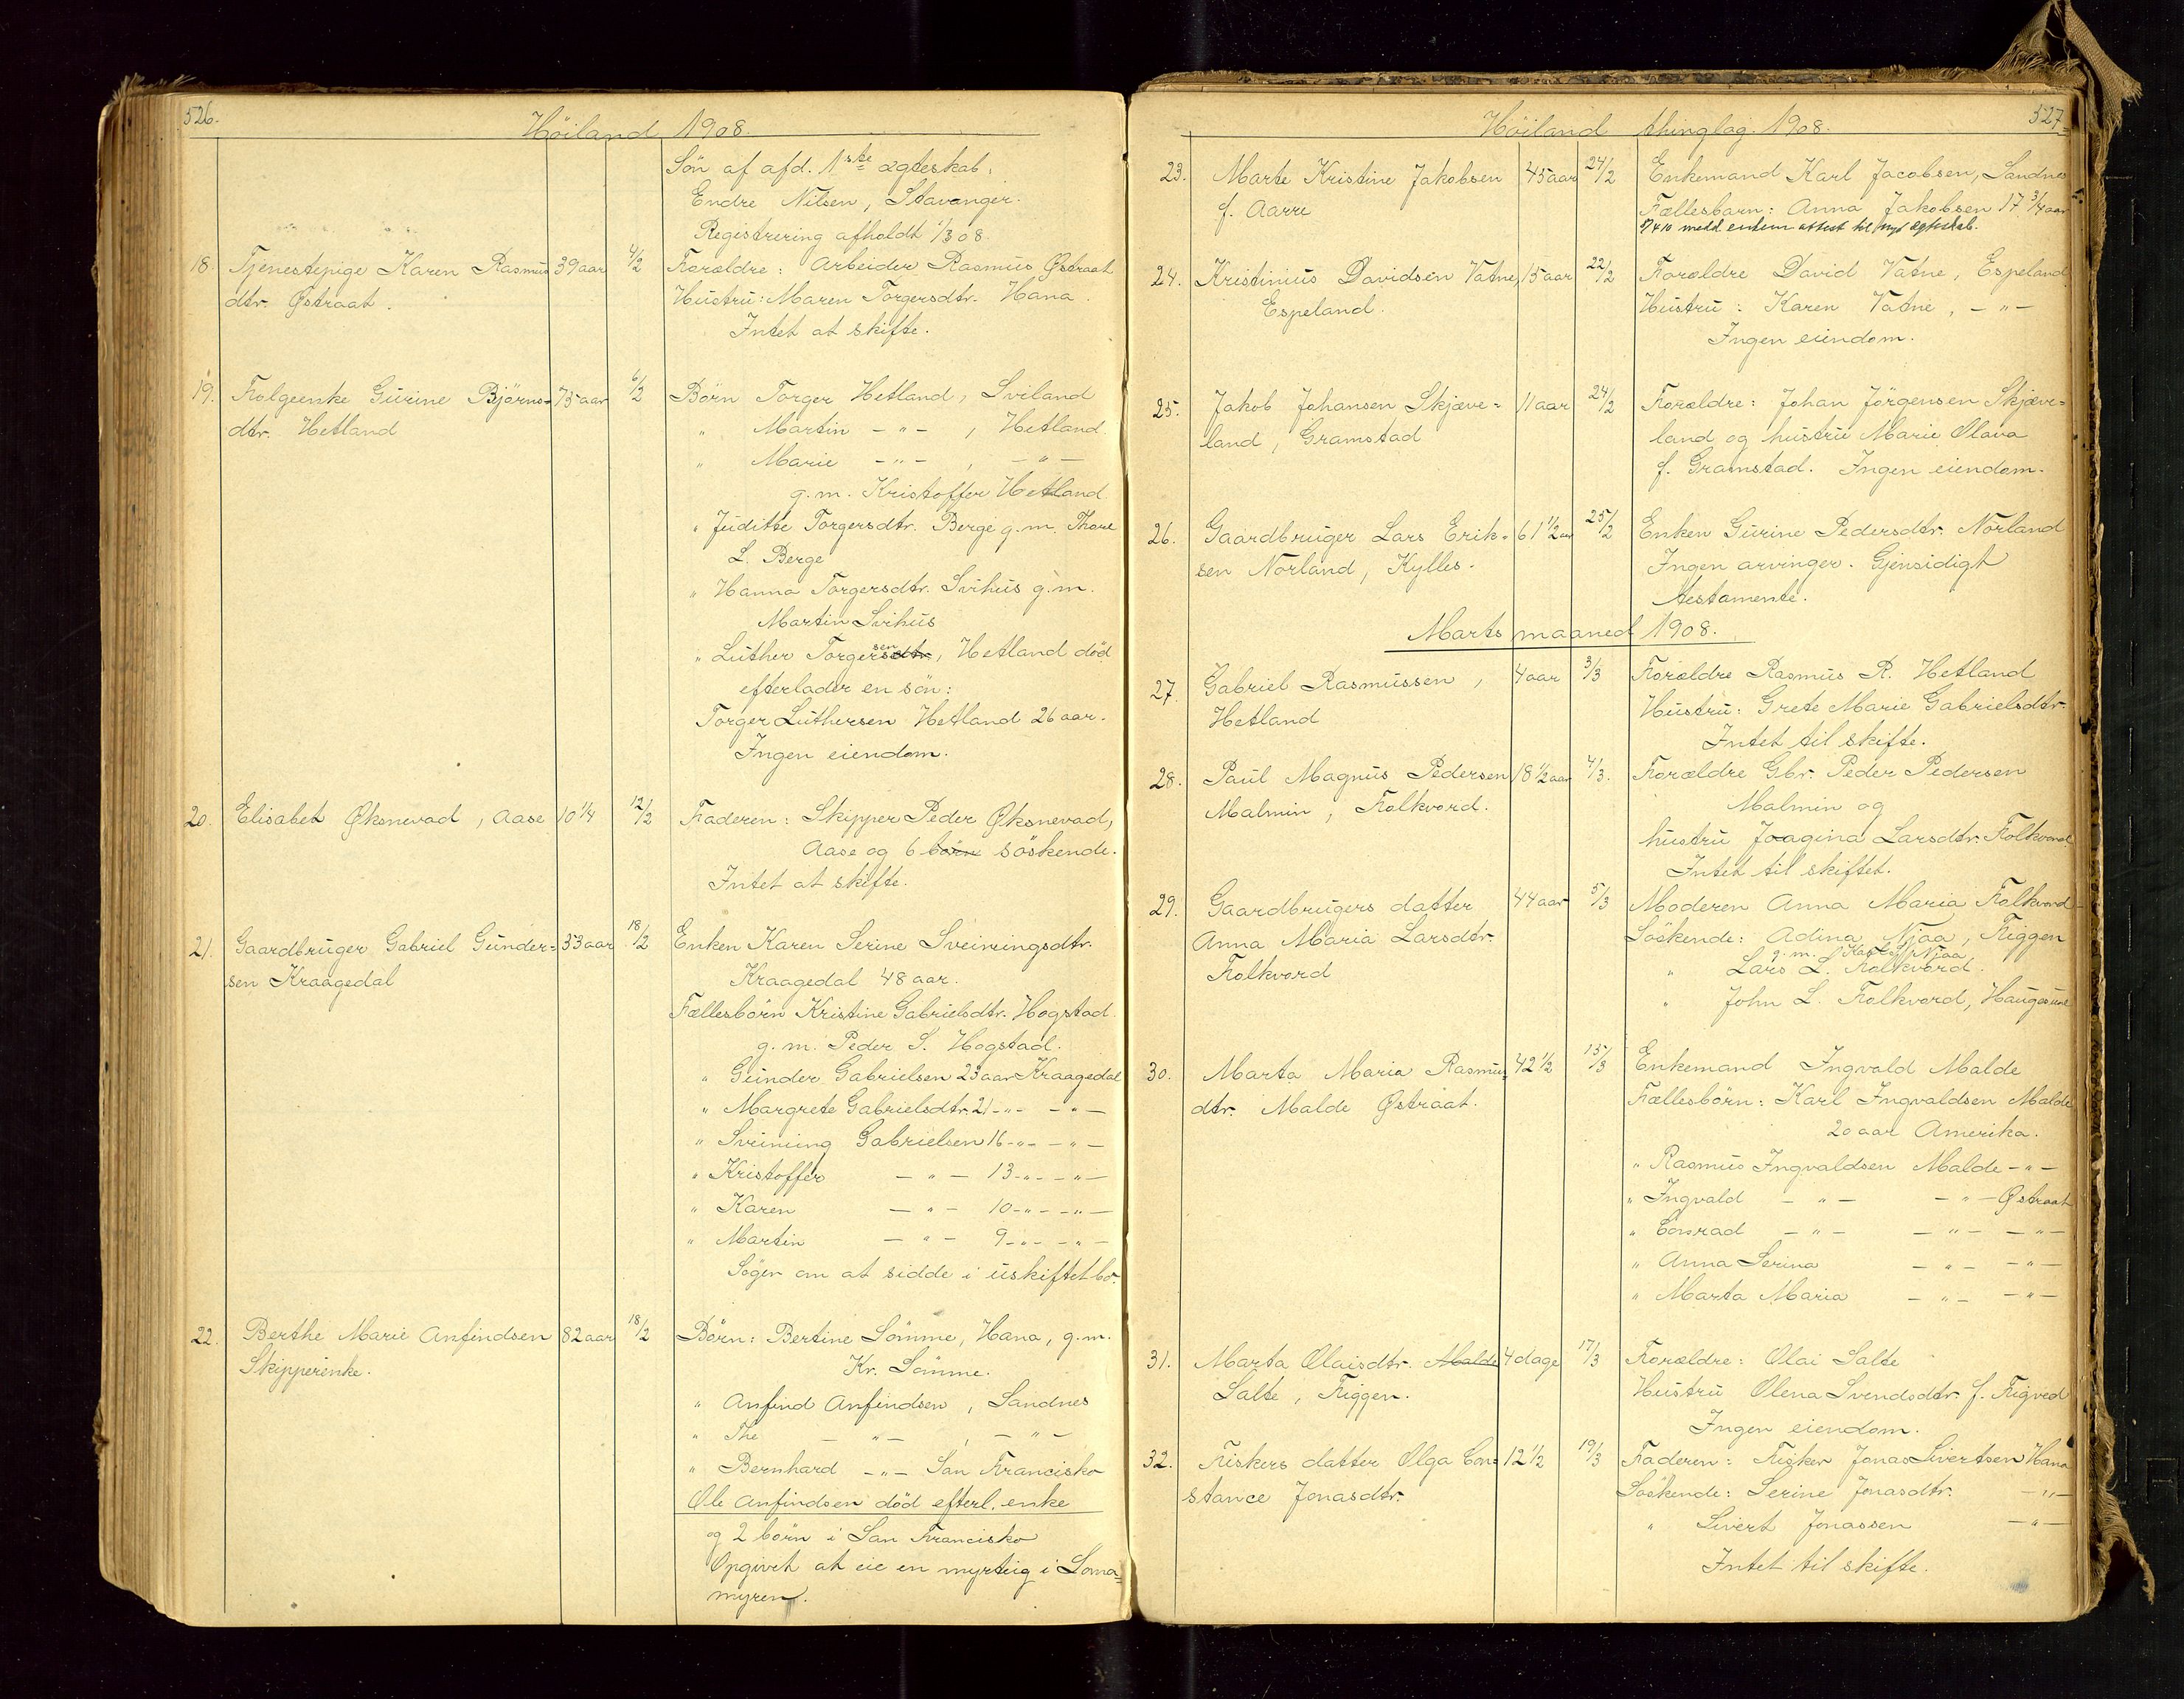 526.
Höiland 1908.
Sön af afd. 1ste ægteskab:
Endre Nilsen, Stavanger.
Registrering afholdt 1/3 08.
18. Tjenestepige Karen Rasmus 39 aar 4/2 Forældre: Arbeider Rasmus Østraat
dtr. Østraat. Hustru: Maren Torgersdtr. Hana.
Intet at skifte.
19. Folgeenke Gurine Bjørns= 75 aar 6/2 Börn Torger Hetland, Sviland
dtr. Hetland " Martin - " - , Hetland
" Marie - " - , - " -
g. m. Kristoffer Hetland
" Juditte Torgersdtr. Berge g. m. Thore
L. Berge
" Hanna Torgersdtr. Svihus g. m.
Martin Svihus
" Luther Torgersen, Hetland död
efterlader en sön:
Torger Luthersen Hetland 26 aar.
Ingen eiendom.
20. Elisabet Øksnevad, Aase 10 1/4 12/2 Faderen: Skipper Peder Øksnevad,
Aase og 6 börn söskende.
Intet at skifte.
21. Gaardbruger Gabriel Gunder= 53 aar 18/2 Enken Karen Serine Sveiningsdtr.
sen Kraagedal Kraagedal 48 aar.
Fællesbörn Kristine Gabrielsdtr. Hogstad
g. m. Peder S. Hogstad.
" Gunder Gabrielsen 23 aar Kraagedal
" Margrete Gabrielsdtr. 21 - " - - " -
" Sveining Gabrielsen 16 - " - - " -
" Kristoffer - " - 13 - " - - " -
" Karen - " - 10 - " - - " -
" Martin - " - 9 - " - - " -
Söger om at sidde i uskiftet bo.
22. Berthe Marie Anfindsen 82 aar 18/2 Börn: Bertine Sömme, Hana, g. m.
Skipperenke. Kr. Sömme.
" Anfind Anfindsen, Sandnes
" The - " - , - " -
" Bernhard - " - San Francisko
Ole Anfindsen död efterl. enke
og 2 börn i San Francisko
Opgivet at eie en myrteig i Soma=
myren.
527
Höiland thinglag 1908.
23. Marte Kristine Jakobsen 45 aar 24/2 Enkemand Karl Jacobsen, Sandnes
f. Aarre Fællesbarn: Anna Jakobsen 17 3/4 aar
medd attest til nyt ægteskab.
24. Kristinius Davidsen Vatne, 15 aar 22/2 Forældre David Vatne, Espeland
Espeland. Hustru: Karen Vatne, - " -
Ingen eiendom.
25. Jakob Johansen Skjæve= 11 aar 24/2 Forældre: Johan Jörgensen Skjæve=
land, Gramstad land og hustru Marie Olava
f. Gramstad. Ingen eiendom.
26. Gaardbruger Lars Erik= 61 1/2 aar 25/2 Enken Gurine Pedersdtr. Norland
sen Norland, Kylles. Ingen arvinger. Gjensidigt
testamente.
Marts maaned 1908.
27. Gabriel Rasmussen, 4 aar 3/3 Forældre Rasmus R. Hetland
Hetland Hustru: Grete Marie Gabrielsdtr.
Intet til skifte.
28. Paul Magnus Pedersen 18 1/2 aar 4/3. Forældre Gbr. Peder Pedersen
Malmin, Folkvord. Malmin og
hustru Joagina Larsdtr. Folkvord
Intet til skiftet.
29. Gaardbrugers datter 44 aar 5/3 Moderen Anna Maria Folkvord
Anna Maria Larsdtr. Söskende: Adina Njaa, Figgen
g. m. Karl Njaa
Folkvord " Lars L. Folkvord.
" John L. Folkvord, Haugesund
30. Marta Maria Rasmus= 42 1/2 15/3 Enkemand Ingvald Malde
dtr. Malde Østraat. Fællesbörn: Karl Ingvaldsen Malde
20 aar Amerika.
" Rasmus Ingvaldsen Malde - " -
" Ingvald - " - - " - Østraat
" Conrad - " - - " - - " -
" Anna Serina - " - - " -
" Marta Maria - " - - " -
31. Marta Olaisdtr. Malde 4 dage 17/3 Forældre: Olai Salte
Salte, Figgen. Hustru Olena Svendsdtr. f. Figved
Ingen eiendom.
32. Fiskers datter Olga Con= 12 1/2 19/3 Faderen: Fisker Jonas Sivertsen Hana
stance Jonasdtr. Söskende: Serine Jonasdtr. - " -
" Sivert Jonassen - " -
Intet til skifte.